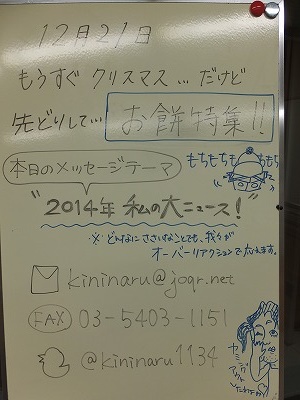 12月21日
もうすぐ クリスマス…だけど
先どりして… お餅特集!!
本日のメッセージテーマ
もちもちもちもち
"2014年 私の大ニュース!"
※どんなにささいなことでも、我々が
オーバーリアクションで応えます。
kininaru@joqr.net
FAX 03-5403-1151
@kininaru1134